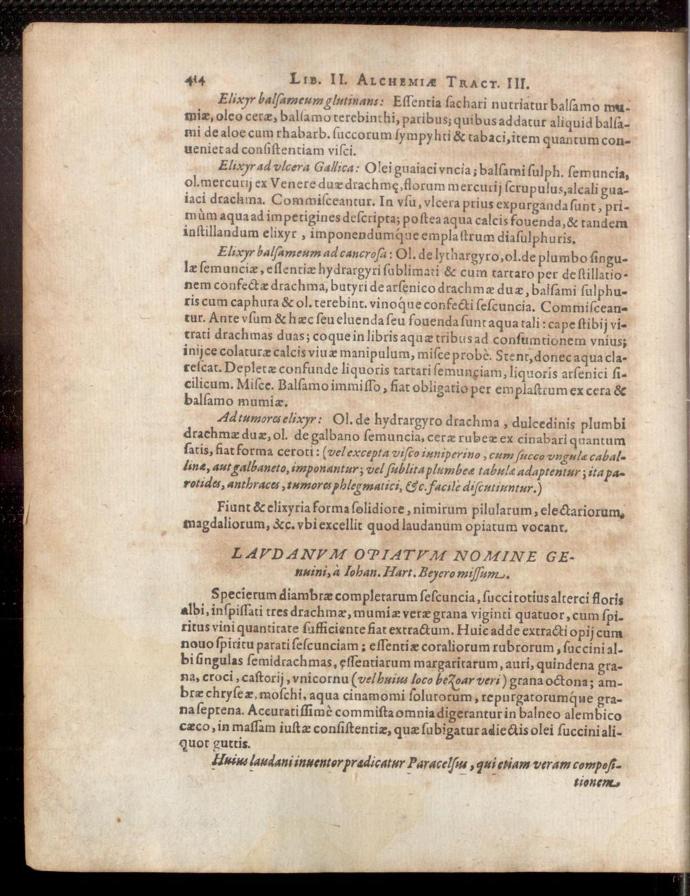 414 LIB. II. ALCHEMIÆ TRACT. III.
Elixyr balſameum glutinans: Eſſentia ſachari nutriatur balſamo mu-
miæ, oleo ceræ, balſamo terebinthi, paribus; quibus addatur aliquid balſa-
mi de aloe cum rhabarb. ſuccorum ſympyhti & tabaci, item quantum con-
ueniet ad conſiſtentiam viſci.
Elixyr ad vlcera Gallica: Olei guaiaci vncia; balſami ſulph. ſemuncia,
ol. mercurij ex Venere duæ drachmę, florum mercurij ſcrupulus, alcali gua-
iaci drachma. Commiſceantur. In vſu, vlcera prius expurganda ſunt, pri-
mùm aqua ad impetigines deſcripta; poſtea aqua calcis fouenda, & tandem
inſtillandum elixyr, imponendumque emplaſtrum diaſulphuris.
Elixyr balſameum ad cancroſa: Ol. de lythargyro, ol. de plumbo ſingu-
læ ſemunciæ, eſſentiæ hydrargyri ſublimati & cum tartaro per deſtillatio-
nem confectæ drachma, butyri de arſenico drachmæ duæ, balſami ſulphu-
ris cum caphura & ol. terebint. vinoque confecti ſeſcuncia. Commiſcean-
tur. Ante vſum & hæc ſeu eluenda ſeu fouenda ſunt aqua tali: cape ſtibij vi-
trati drachmas duas; coque in libris aquæ tribus ad conſumtionem vnius;
inijce colaturæ calcis viuæ manipulum, miſce probè. Stent, donec aqua cla-
reſcat. Depletæ confunde liquoris tartari ſemunciam, liquoris arſenici ſi-
cilicum. Miſce. Balſamo immiſſo, fiat obligatio per emplaſtrum ex cera &
balſamo mumiæ.
Ad tumores elixyr: Ol. de hydrargyro drachma, dulcedinis plumbi
drachmæ duæ, ol. de galbano ſemuncia, ceræ rubeæ ex cinabari quantum
ſatis, fiat forma ceroti: (vel excepta viſco iuniperino, cum ſucco vngulæ cabal-
linæ, aut galbaneto, imponantur; vel ſublita plumbeæ tabulæ adaptentur; ita pa-
rotides, anthraces, tumores phlegmatici, &c. facile diſcutiuntur.)
Fiunt & elixyria forma ſolidiore, nimirum pilularum, electariorum,
magdaliorum, &c. vbi excellit quod laudanum opiatum vocant.
LAVDANVM OPIATVM NOMINE GE-
nuini, à Iohan. Hart. Beyero miſſum.
Specierum diambræ completarum ſeſcuncia, ſucci totius alterci floris
albi, inſpiſſati tres drachmæ, mumiæ veræ grana viginti quatuor, cum ſpi-
ritus vini quantitate ſufficiente fiat extractum. Huic adde extracti opij cum
nouo ſpiritu parati ſeſcunciam; eſſentiæ coraliorum rubrorum, ſuccini al-
bi ſingulas ſemidrachmas, eſſentiarum margaritarum, auri, quindena gra-
na, croci, caſtorij, vnicornu (vel huius loco bezoar veri) grana octona; am-
bræ chryſeæ, moſchi, aqua cinamomi ſolutorum, repurgatorumque gra-
na ſeptena. Accuratiſſimè commiſta omnia digerantur in balneo alembico
cæco, in maſſam iuſtæ conſiſtentiæ, quæ ſubigatur adiectis olei ſuccini ali-
quot guttis.
Huius laudani inuentor prædicatur Paracelſus, qui etiam veram compoſi-
tionem